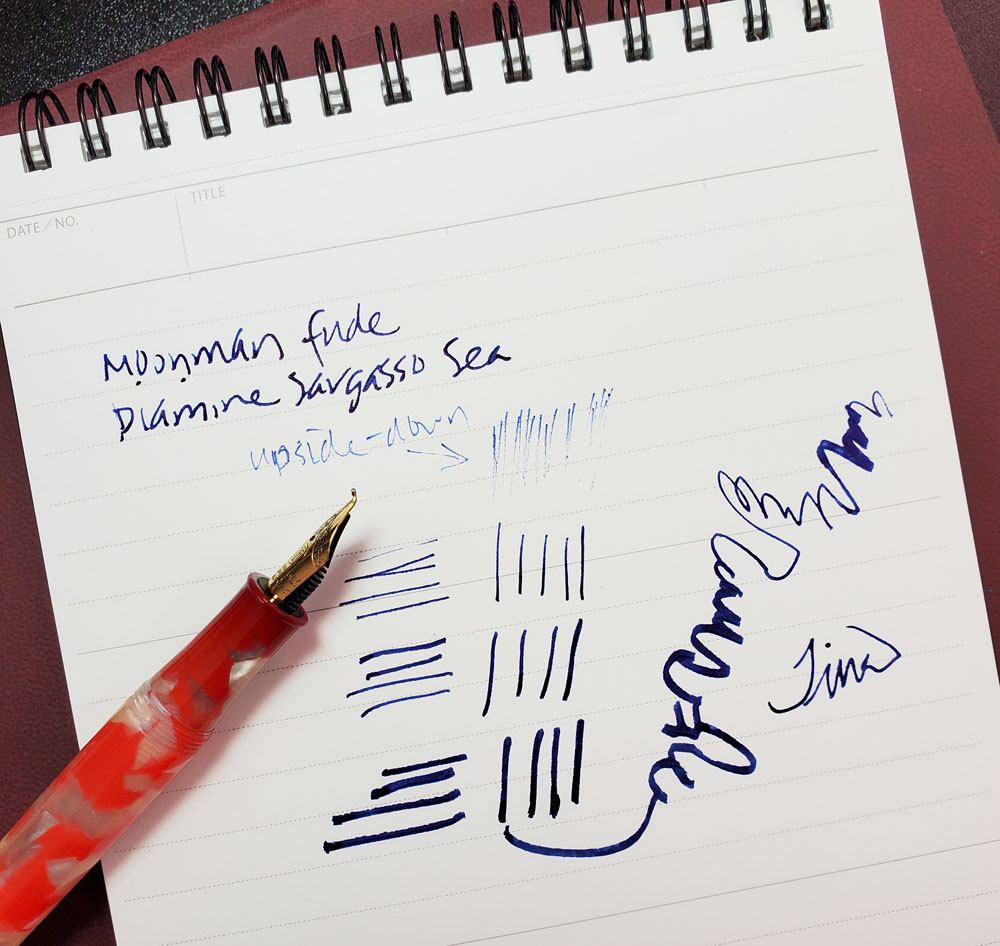 DATE/NO.
TITLE
Moonman fude
Diamine Sargasso Sea
upside-down
Tina